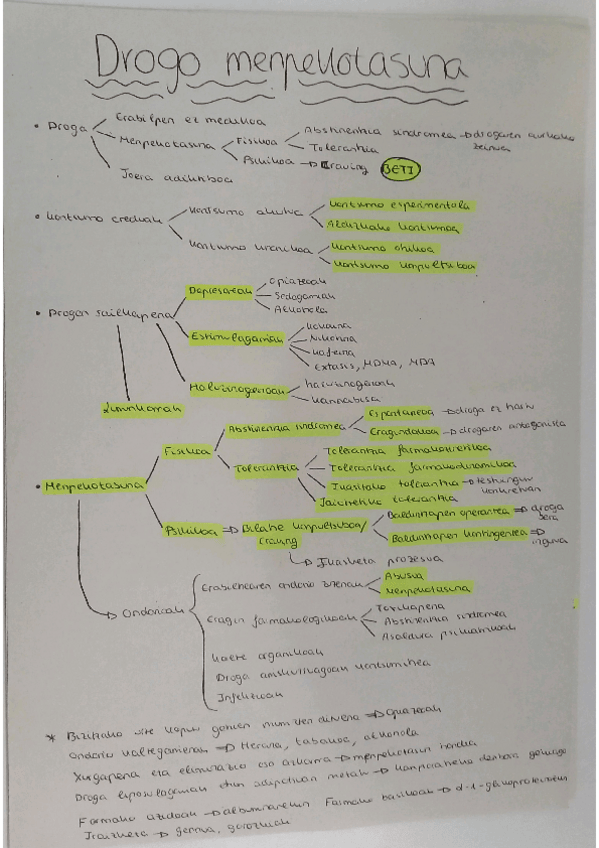 Drogo menpekotasuna
• Droga
Erabilpen ez medikoa
Menpekotasuna
Fisikoa
Abstinentzia sindromea → drogaren aurkako
Tolerantzia
Psikikoa → Craving BETI
Joera adiktiboa
• Kontsumo ereduak
Kontsumo akutua
Kontsumo esperimentala
Kontsumo kronikoa
Kontsumo ohikoa
Kontsumo konpultsiboa
• Drogen sailkapena
Depresoreak
Opiazeoak
Sedagarriak
Alkohola
Estimulagarriak
Kokaina
Nikotina
Kafeina
Extasis, MDMA, MDA
Haluzinogenoak
haluzinogenoak
Kannabisa
• Menpekotasuna
Fisikoa
Abstinentzia sindromea
Espontaneoa → droga ez hartu
Eragindakoa → drogaren antagonista
Tolerantzia
Tolerantzia farmakozinetikoa
Tolerantzia farmakodinamikoa
Ikasitako tolerantzia → testuinguru konkretuan
Psikikoa ⇒ Bilaketa konpultsiboa/
craving
Baldintzapen operantea ⇒ droga bera
Baldintzapen kontingentea ⇒ ingurua
→ Ikasketa prozesua
→ Ondorioak
Erabileraren ondorio zuzenak
Abusua
Menpekotasuna
Eragin farmakologikoak
Toxikapena
Abstinentzia sindromea
Asaldura psikiatrikoak
Kalte organikoak
Droga
Infekzioak
* Bizitzako urte kopuru gehien murrizten dituena ⇒ opiazeoak
Ondorio kaltegarrienak → Heroina, tabakoa, alkohola
Xurgapena eta eliminazio oso azkarra → menpekotasun handia
Droga liposolugarriak ehun adiposoan metatu → kanporatzeko denbora gehiago
Farmako azidoak → albuminarekin Farmako basikoak → α-1-glikoproteinekin
Iraizketa → gernua, gorozkiak